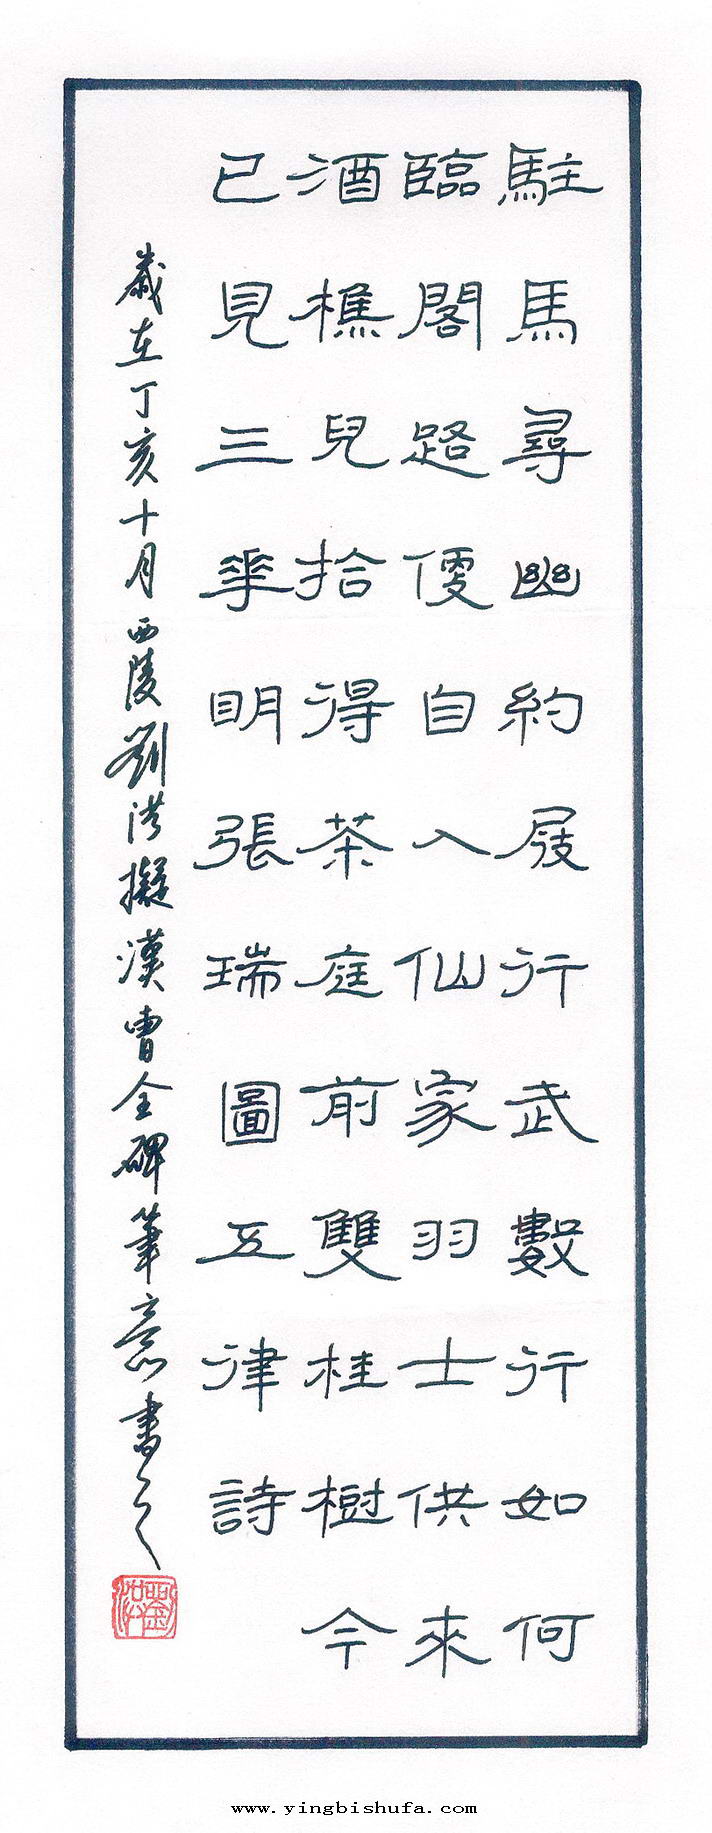 駐馬尋幽約屐行武數行如何
臨閣路優自入仙家羽士供來
酒樵兒拾得茶庭前雙桂樹今
已見三華明張瑞圖五律詩
歲在丁亥十月西陵劉洪擬漢曹全碑筆意書之
劉洪
www.yingbishufa.com